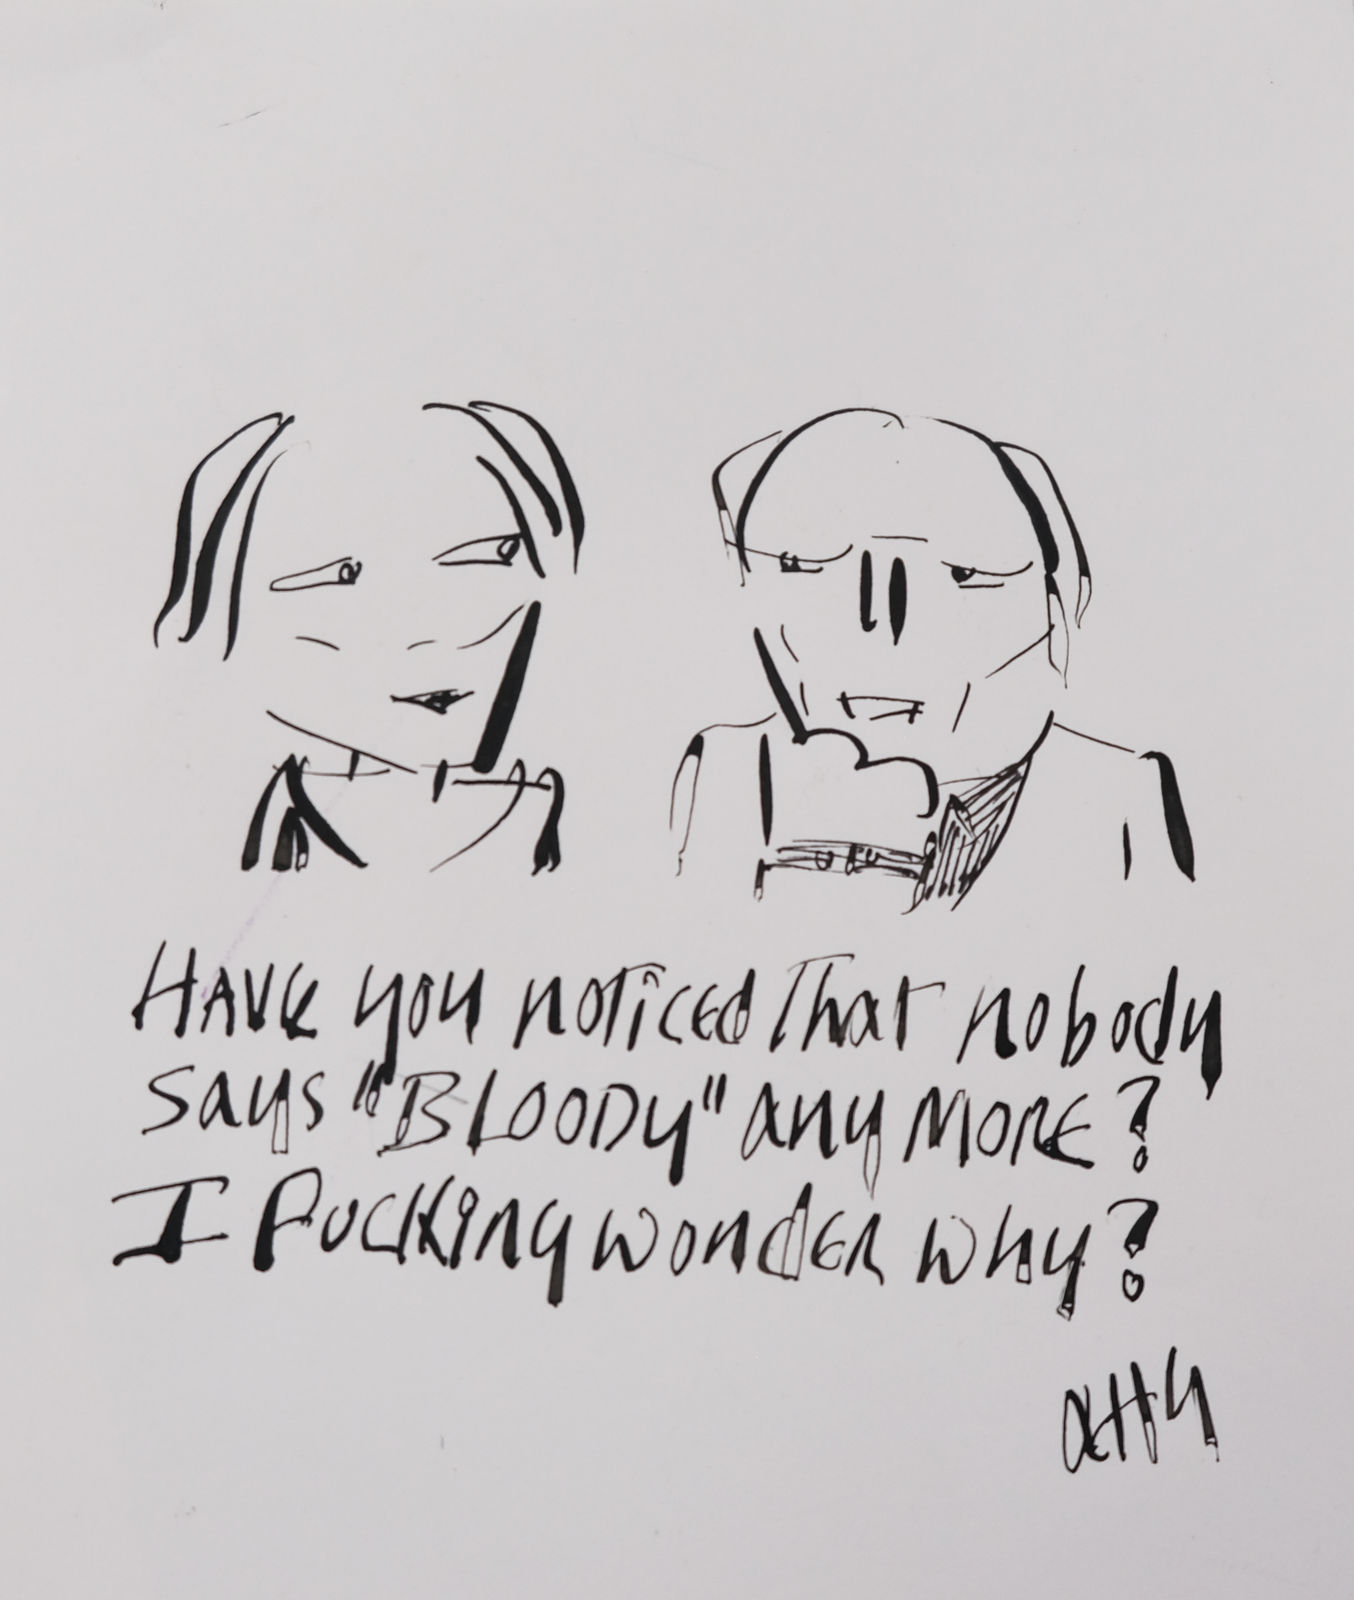 Have you noticed That nobody
says "BLOODy" any MORE?
I fucking wonder why?